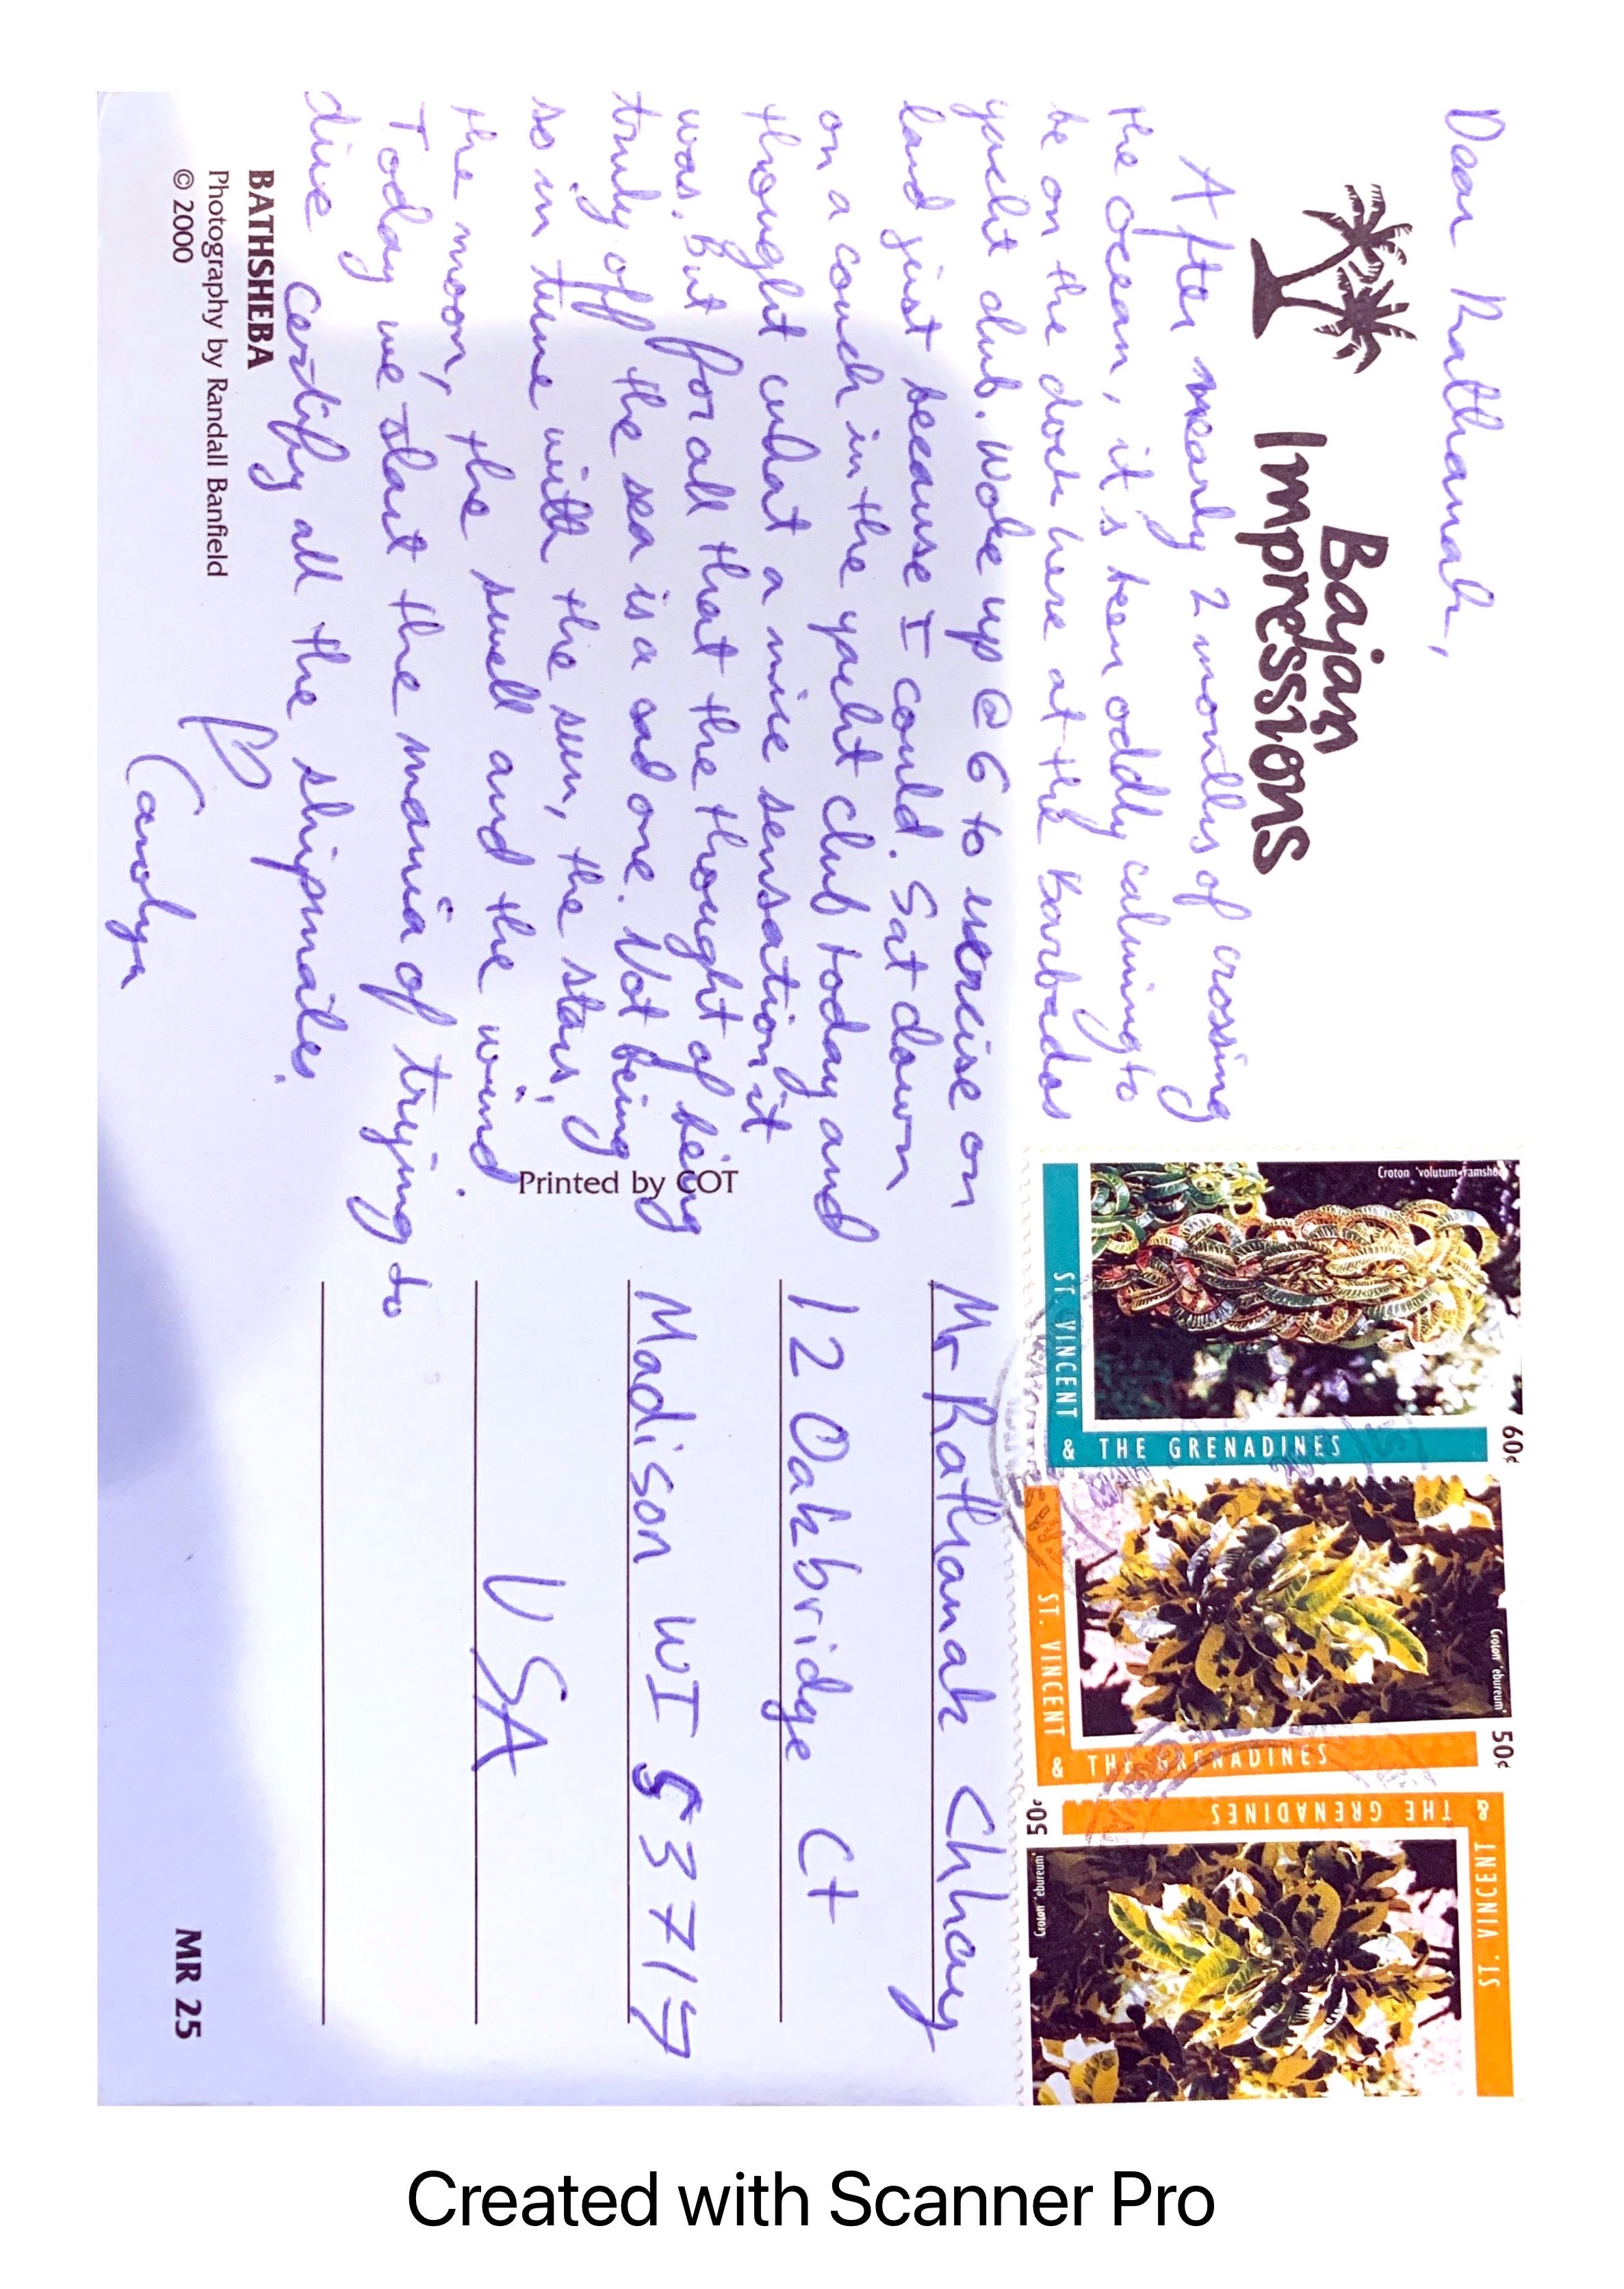 Dear Rathanak,
Bajan
Impressions
After nearly 2 months of crossing
the ocean, it's been oddly calming to
be on the dock here at the Barbados
yacht club. Woke up @ 6 to exercise on
land just because I could. Sat down
on a couch in the yacht club today and
thought what a nice sensation it
was. but for all that the thought of being
truly off the sea is a sad one. Not being
so in tune with the sun, the stars,
the moon, the swell and the wind.
Today we start the mania of trying to
dive certify all the shipmates.
Carolyn
BATHSHEBA
Photography by Randall Banfield
© 2000
Printed by COT
Croton 'volutum-ramshorn'
60¢
ST. VINCENT & THE GRENADINES
Croton 'ebureum'
50¢
ST. VINCENT & THE GRENADINES
Croton 'ebureum'
50¢
ST. VINCENT & THE GRENADINES
Mr Rathanak Chhay
12 Oakbridge Ct
Madison WI 53717
USA
MR 25
Created with Scanner Pro